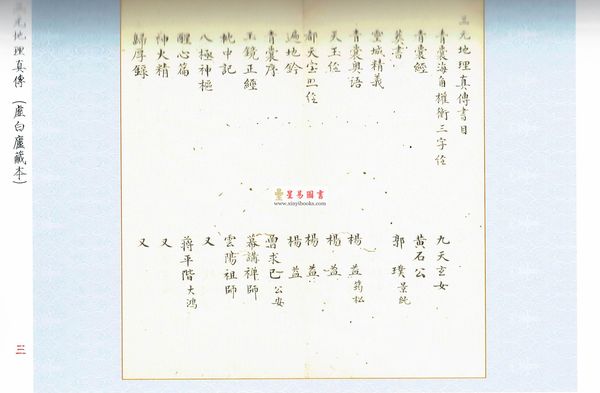 三元地理真傳書目
青囊海角權衡三字经 九天玄女
青囊經 黃石公
葬書 郭璞景純
靈城精義
青囊奧語 楊益筠松
天玉经 楊益
都天宝照经 楊益
遍地鈐 楊益
青囊序 曾求己公安
玉鏡正經 幕講禅師
挑中記 雲陽祖師
八極神樞 又
醒心篇 蔣平階大鴻
神火精 又
歸厚錄 又
星易圖書
www.xinyibooks.com
三元地理真傳（虛白廬藏本）
三